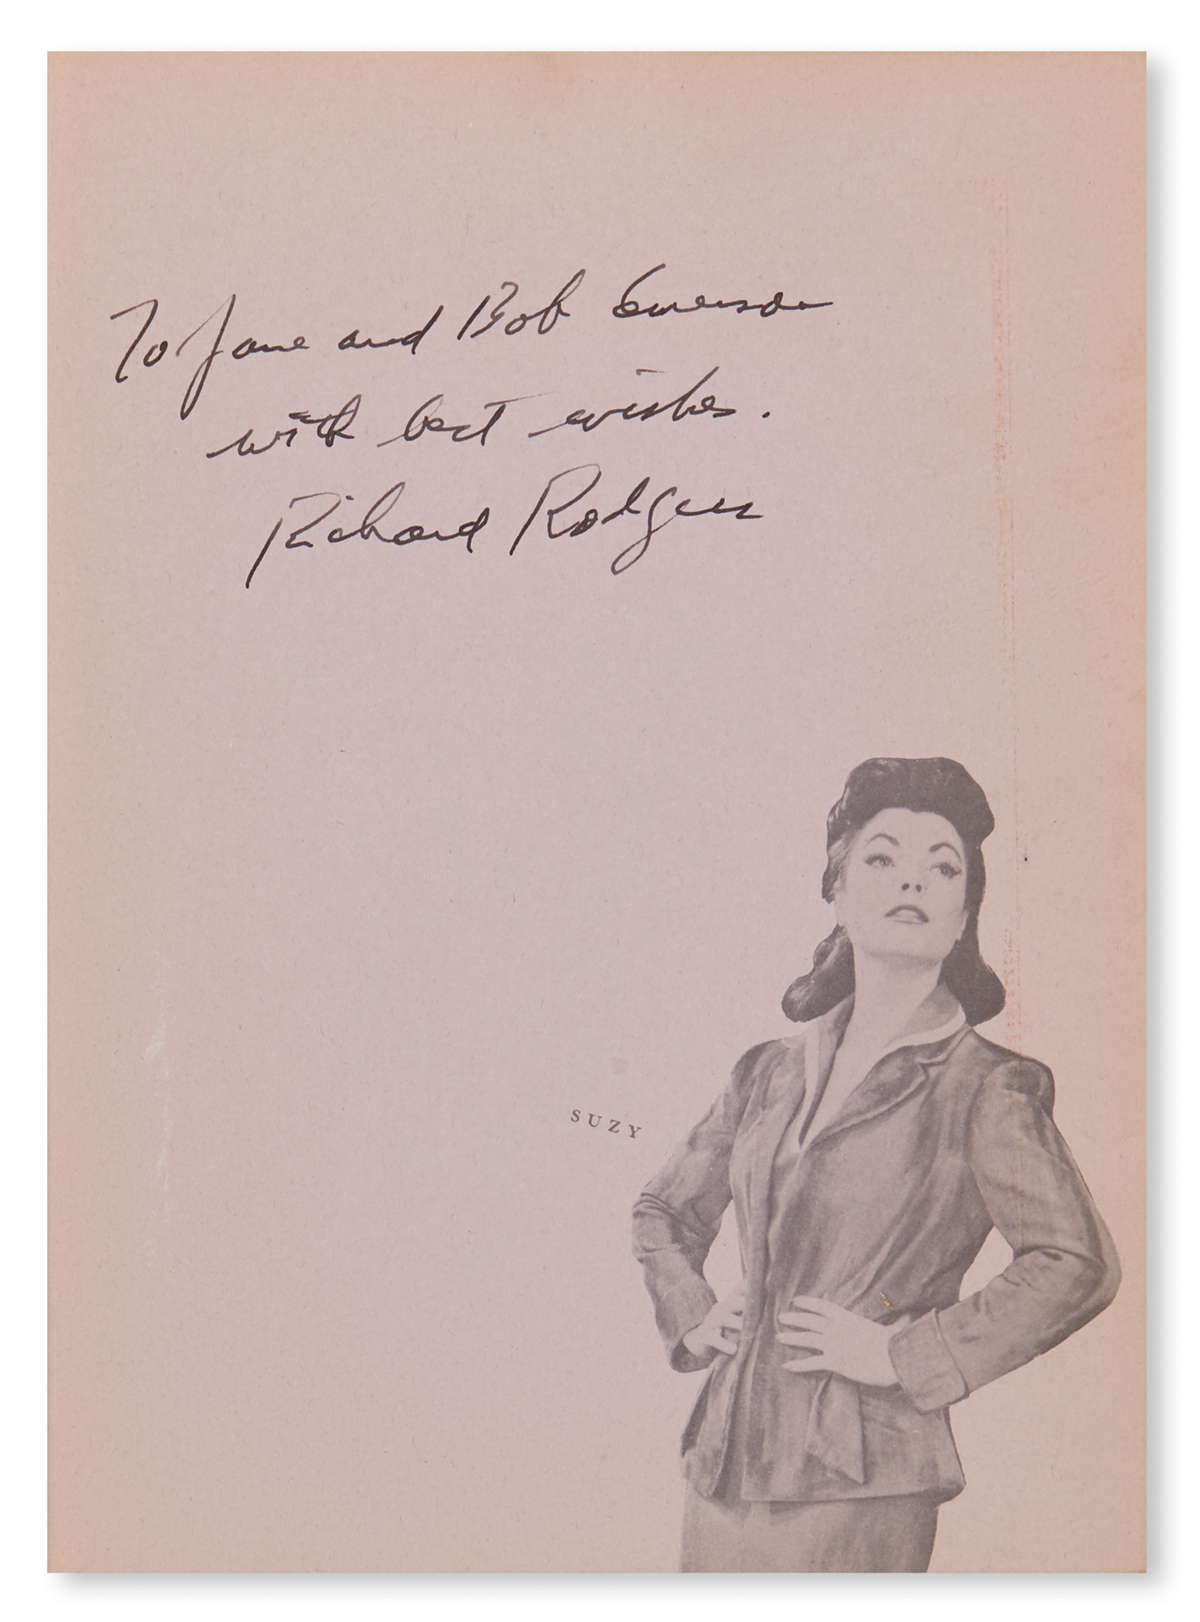 To Jane and Bob Emerson
with best wishes.
Richard Rodgers
SUZY